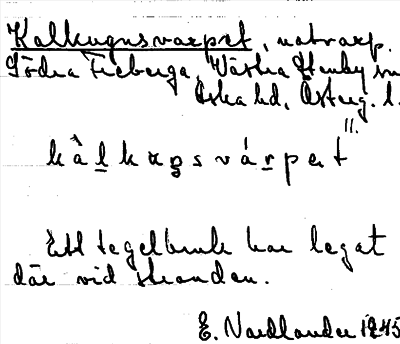 Kalkugnsvarpet, notvarp.
Södra Freberga, Västra Stenby sn
Aska hd, Österg. l.
Ett tegelbruk har legat
där vid stranden.
E. Nordlander 1945